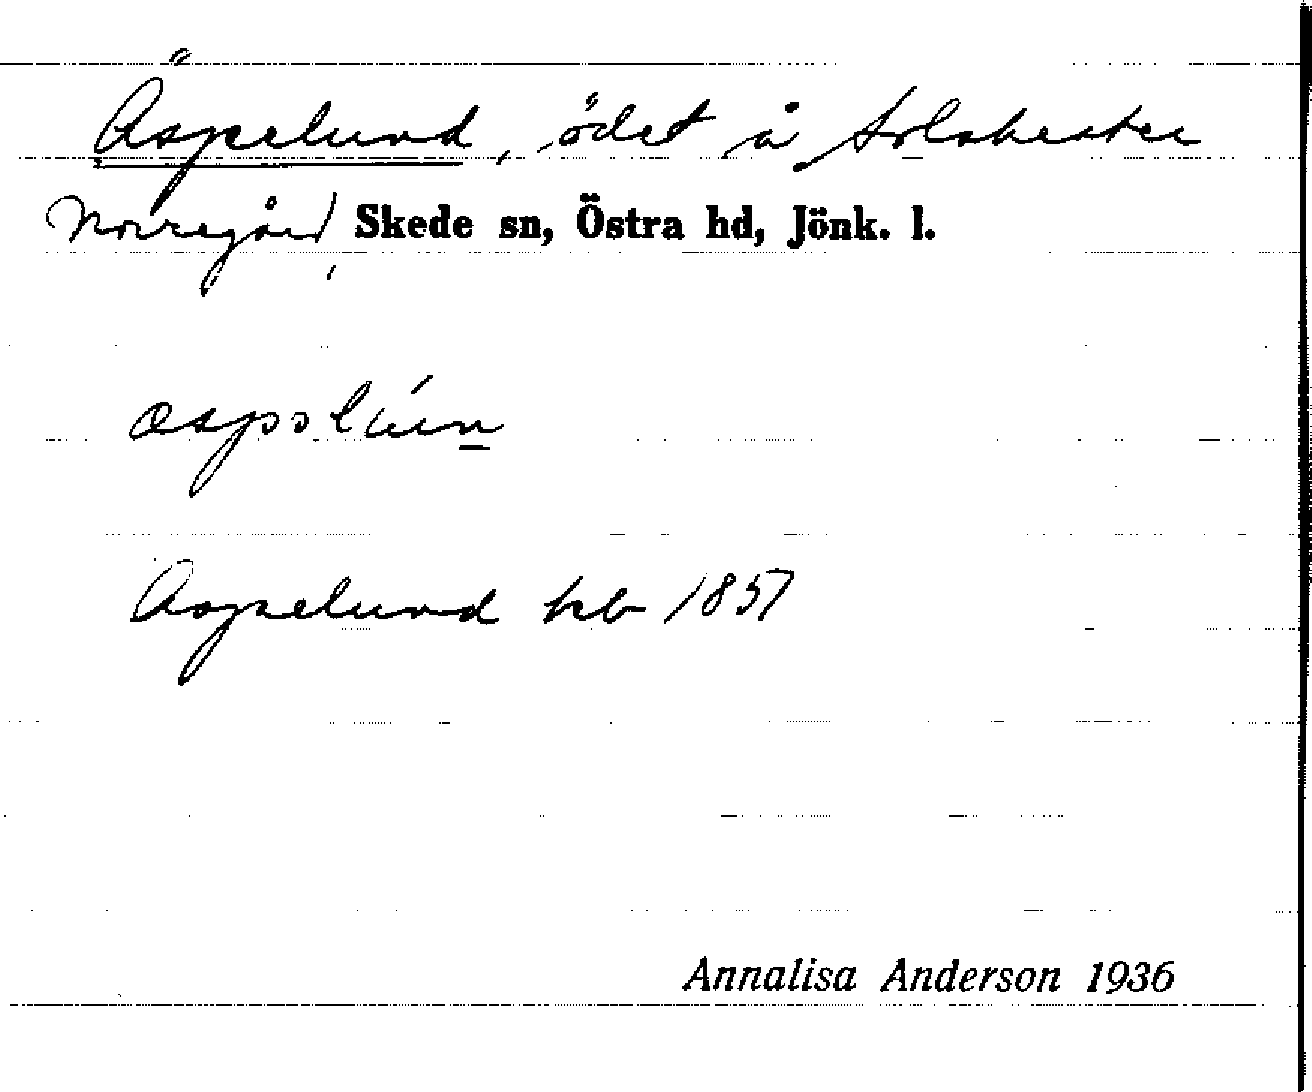 Äspelund, ödet å Solsherter
Norregård, Skede sn, Östra hd, Jönk. l.
æspəlún
Aspelund hb 1857
Annalisa Anderson 1936